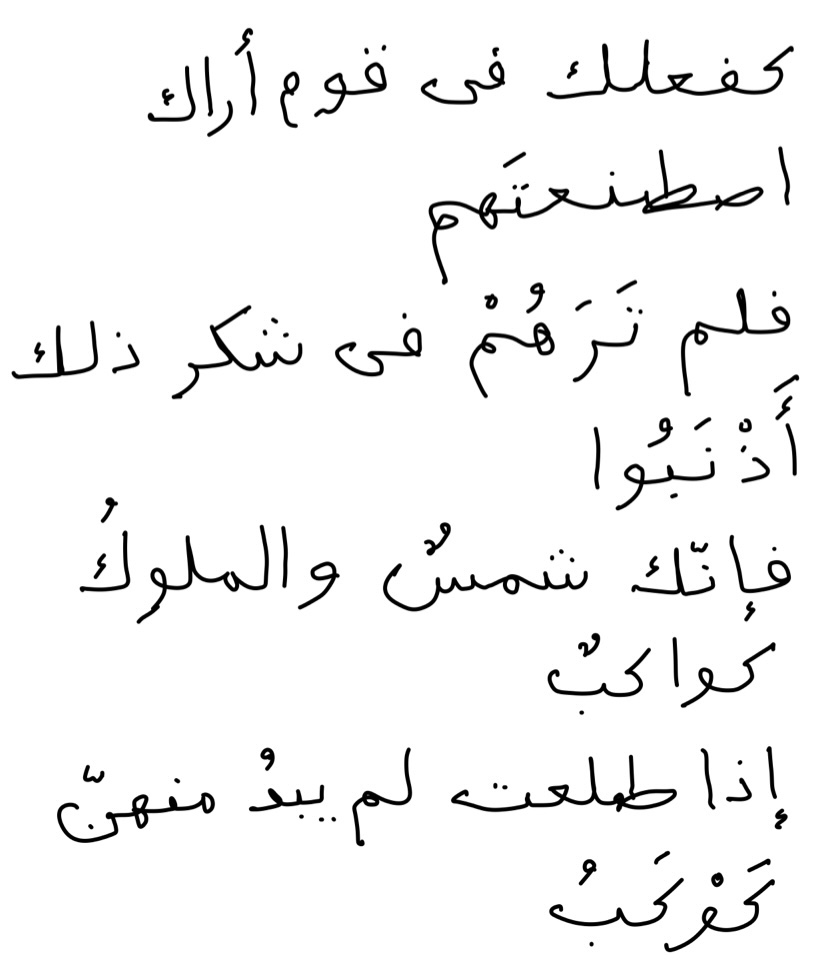 كفعلك فى قوم أراك
اصطنعتَهم
فلم تَرَهُمْ فى شكر ذلك
أَذْنَبُوا
فإنّك شمسٌ والملوكُ
كواكبٌ
إذا طلعت لم يبدُ منهنّ
كَوْكَبُ